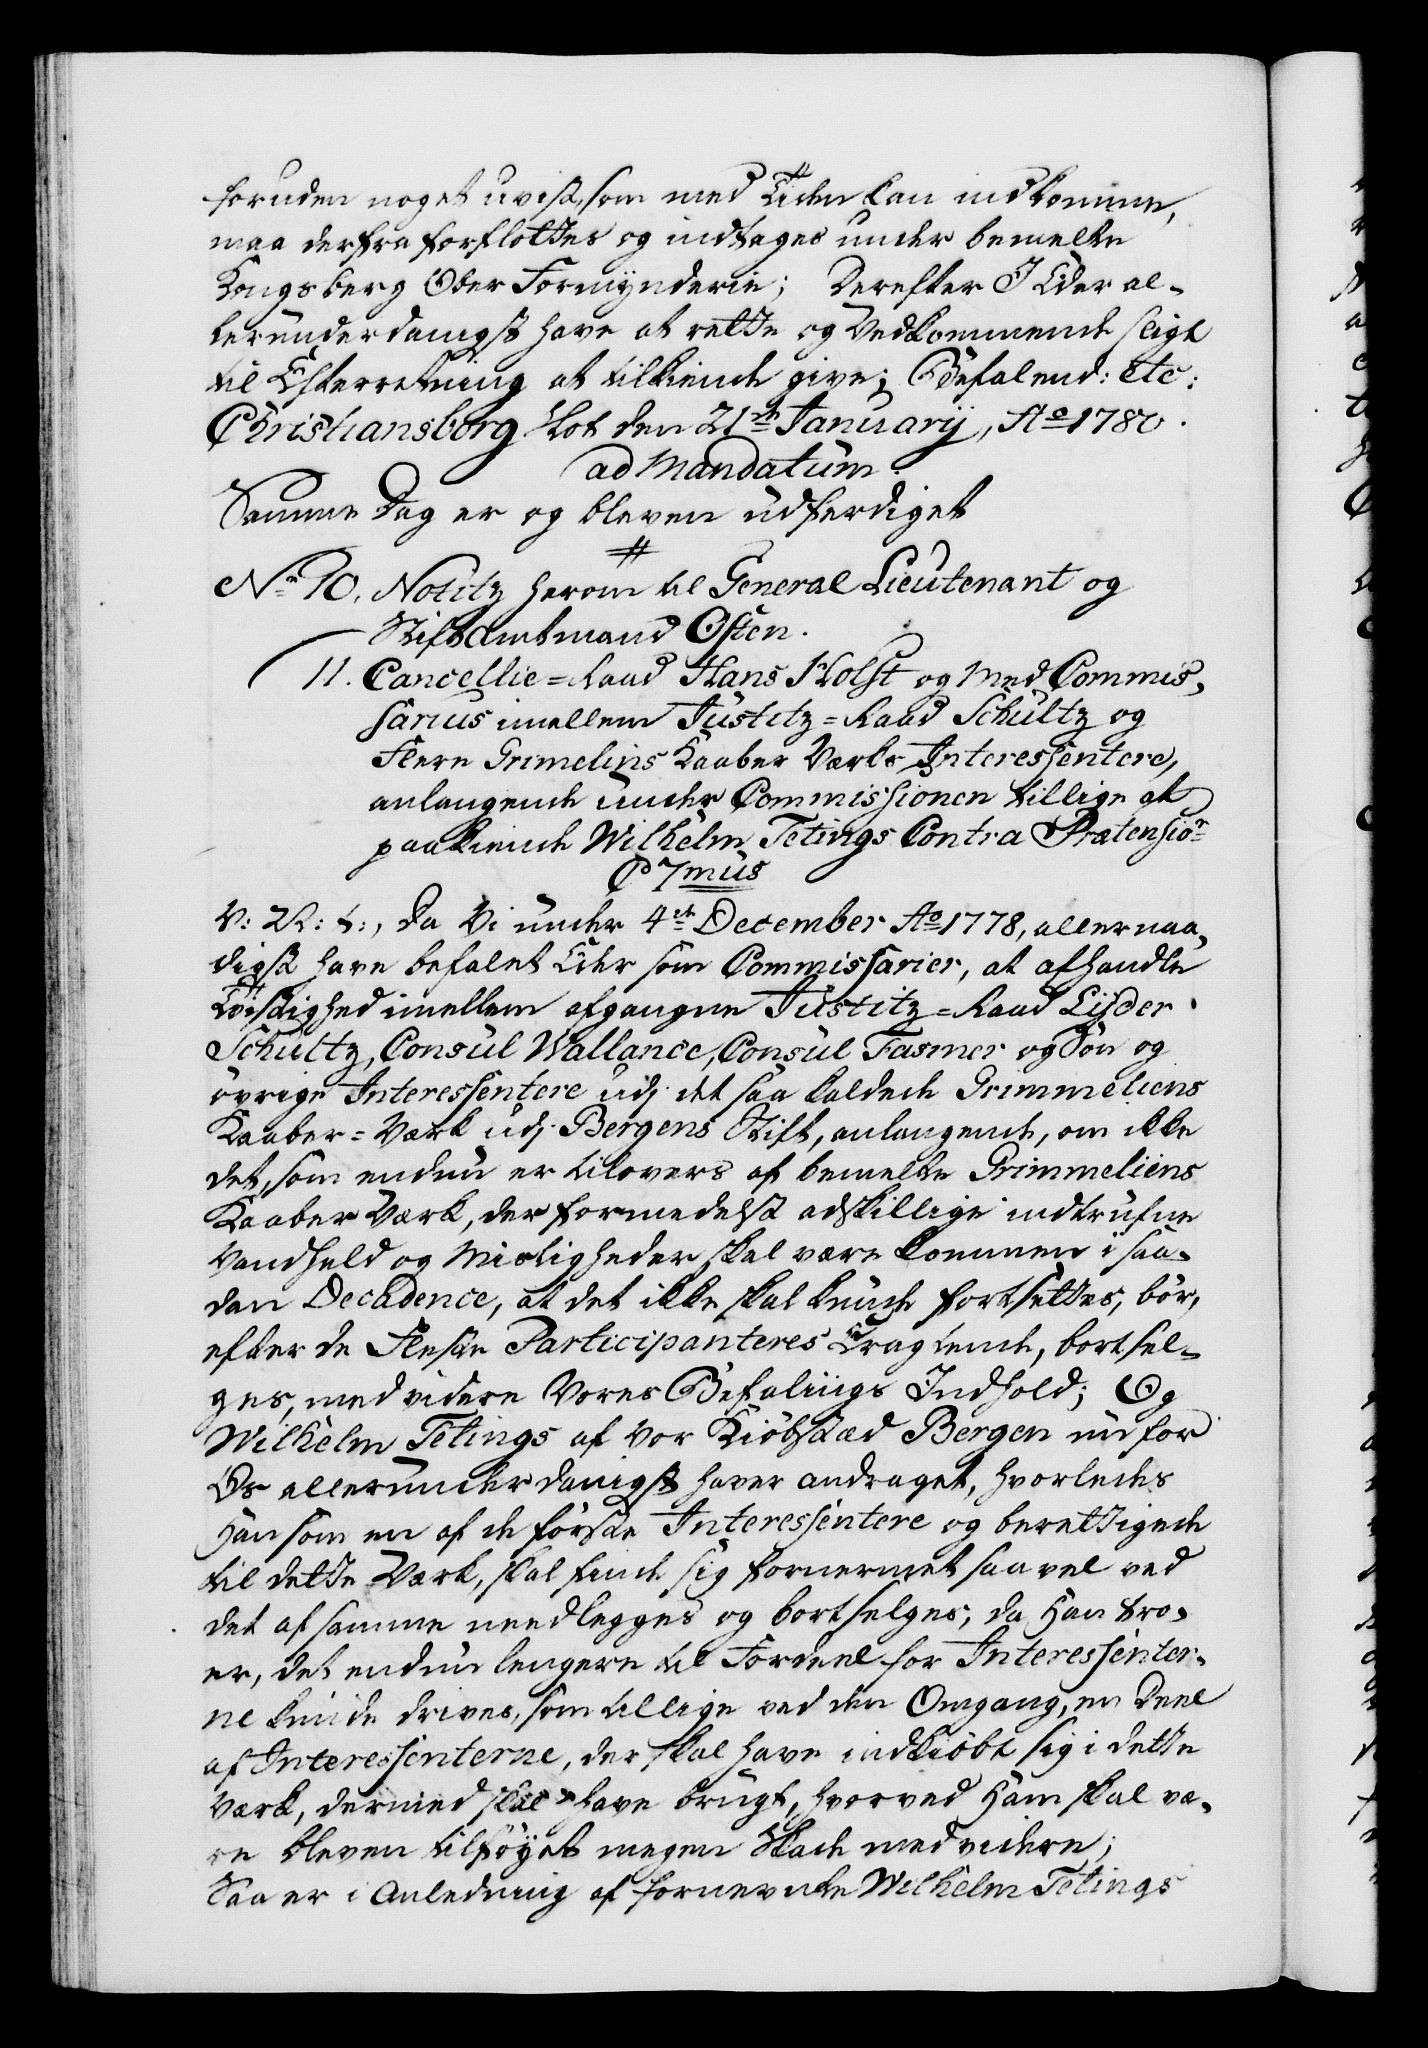 foruden noget uvist, som med Tiden kan indkomme,
maa derfra forflottes og indtages under bemelte
Kongsberg Ober Formynderie; Derefter I Eder al-
lerunderdanigst have at rette og Vedkommende sligt
til Efterretning at tilkiende give; Befalend: etc:
Christiansborg Slot den 21de Januarij, Ao 1780.
ad Mandatum.
Samme Dag er og bleven udferdiget
No 10. Notitz herom til General Lieutenant og
Stiftamtmand Osten.
11. Cancellie=Raad Hans Holst og Med Commis-
sarius imellem Justitz=Raad Schultz og
Flere Grimelins Kaaber Værks Interessentere,
anlangende under Commissionen tillige at
paakiende Wilhelm Tetings Contra Prætensior
C 7mus
V: R: t:, Da Vi under 4de December Ao 1778, allernaa-
digst have befalet Eder som Commissarier, at afhandle
Tvistighed imellem afgangne Justitz=Raad Lijder
Schultz, Consul Wallance, Consul Fasmer og Søn og
övrige Interessentere udj det saa kaldede Grimmeliens
Kaaber=Værk udj Bergens Stift, anlangende, om ikke
det, som endnu er tilovers af bemelte Grimmeliens
Kaaber Værk, der formedelst adskillige indtrufne
Vandheld og Misligheder skal være kommen i saa-
dan Decadence, at det ikke skal kunde fortsettes, bör,
efter de Fleste Participanteres Tragtende, bortsel-
ges, med videre Vores Befalings Indhold; Og
Wilhelm Tetings af Vor Kiöbstæd Bergen nu for
Os allerunderdanigst haver andraget, hvorledes
Han som en af de förste Interessentere og berettigede
til dette Værk, skal finde sig fornermet saavel ved
det af samme needlegges og bortselges, da Han tro-
er, det endnu lengere til Fordeel for Interessenter-
ne kunde drives, som tillige ved den Omgang, en Deel
af Interessenterne, der skal have indkiöbt sig i dette
Værk, dermed skal have brugt, hvorved Ham skal væ-
re bleven tilföyet megen Skade med videre;
Saa er i Anledning af fornevnte Wilhelm Tetings